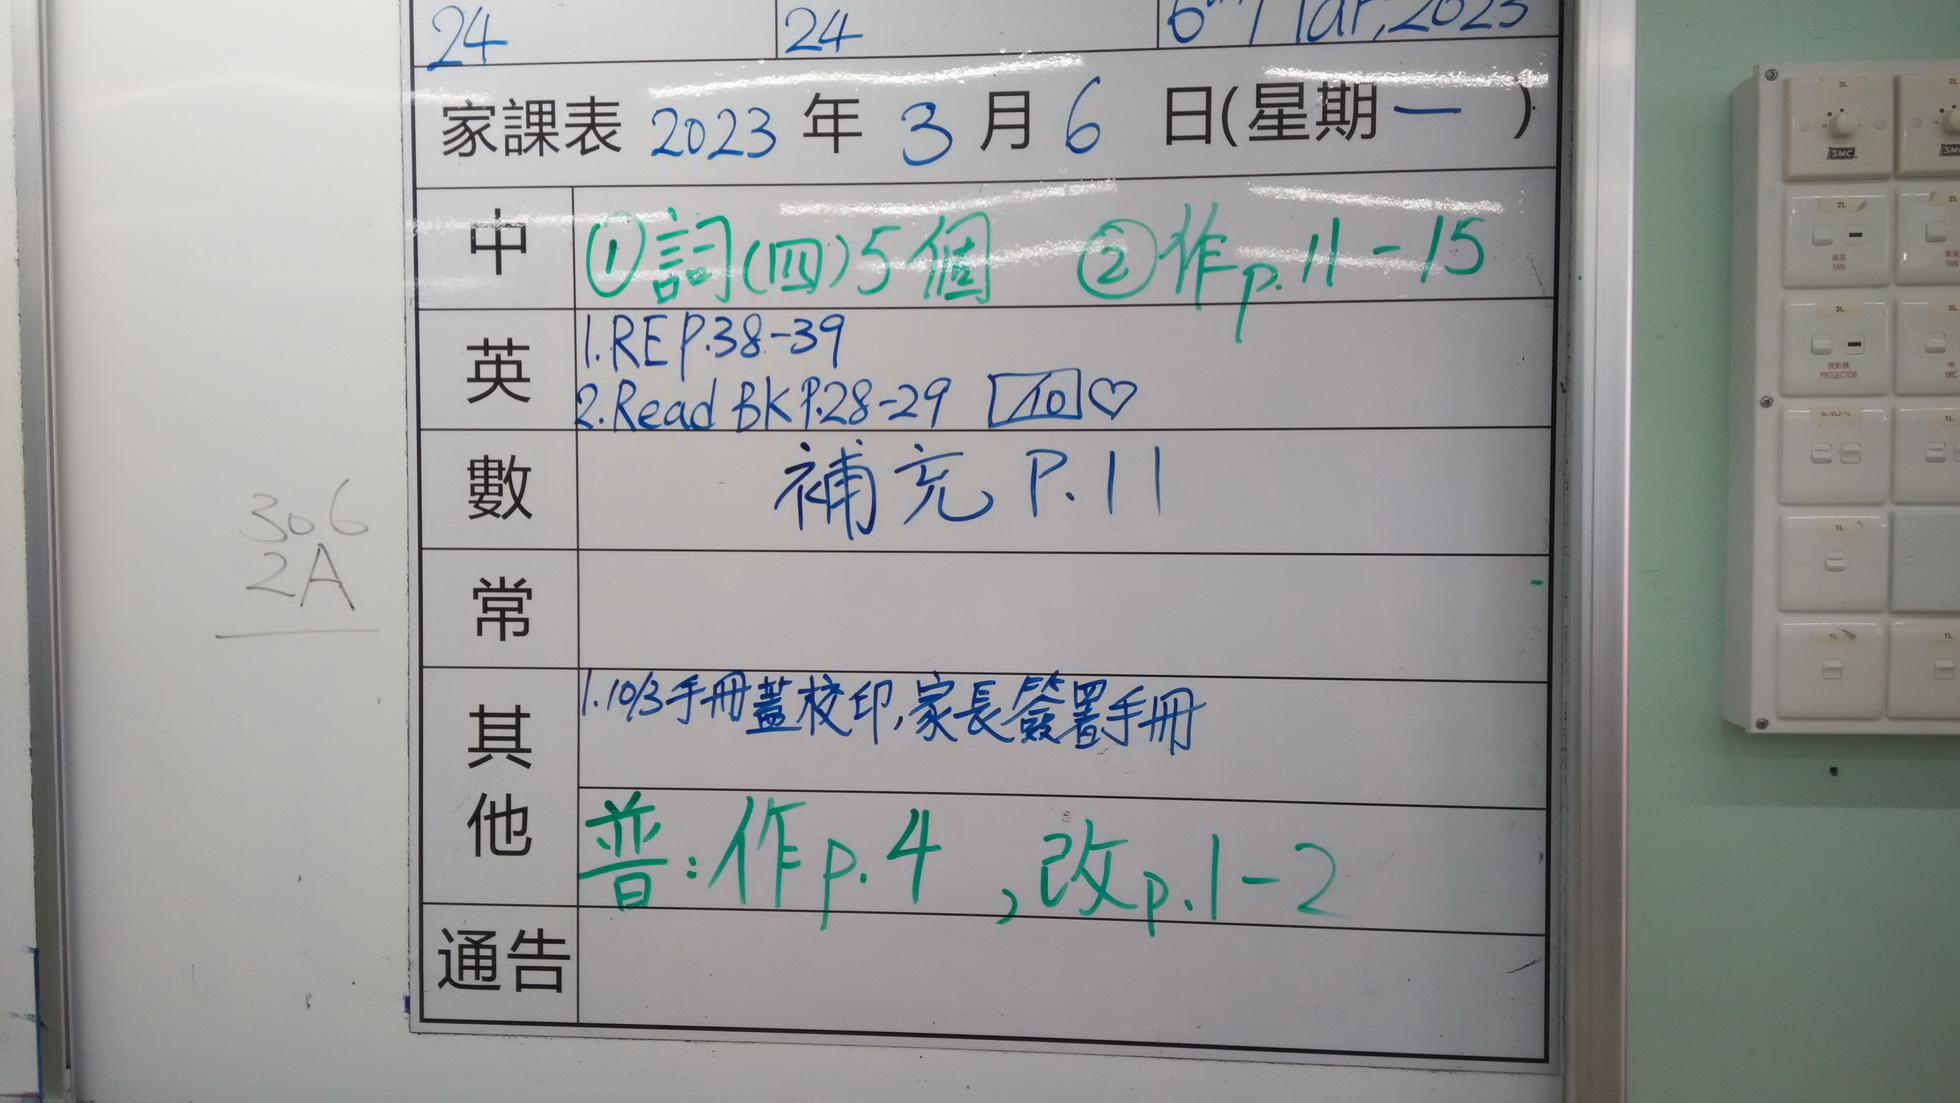 24
24
6th Mar, 2023
家課表 2023 年 3 月 6 日(星期一)
中
①詞(四)5個 ②作p.11-15
英
1.RE P.38-39
2.Read BK P.28-29 /10♡
數
補充 P.11
常
其他
1.10/3手冊蓋校印,家長簽署手冊
普:作p.4 ,改p.1-2
通告
306
2A
2L
SMC
2L
風扇
FAN
3L
投影機
PROJECTOR
MIC
1L
1L
1L
1L